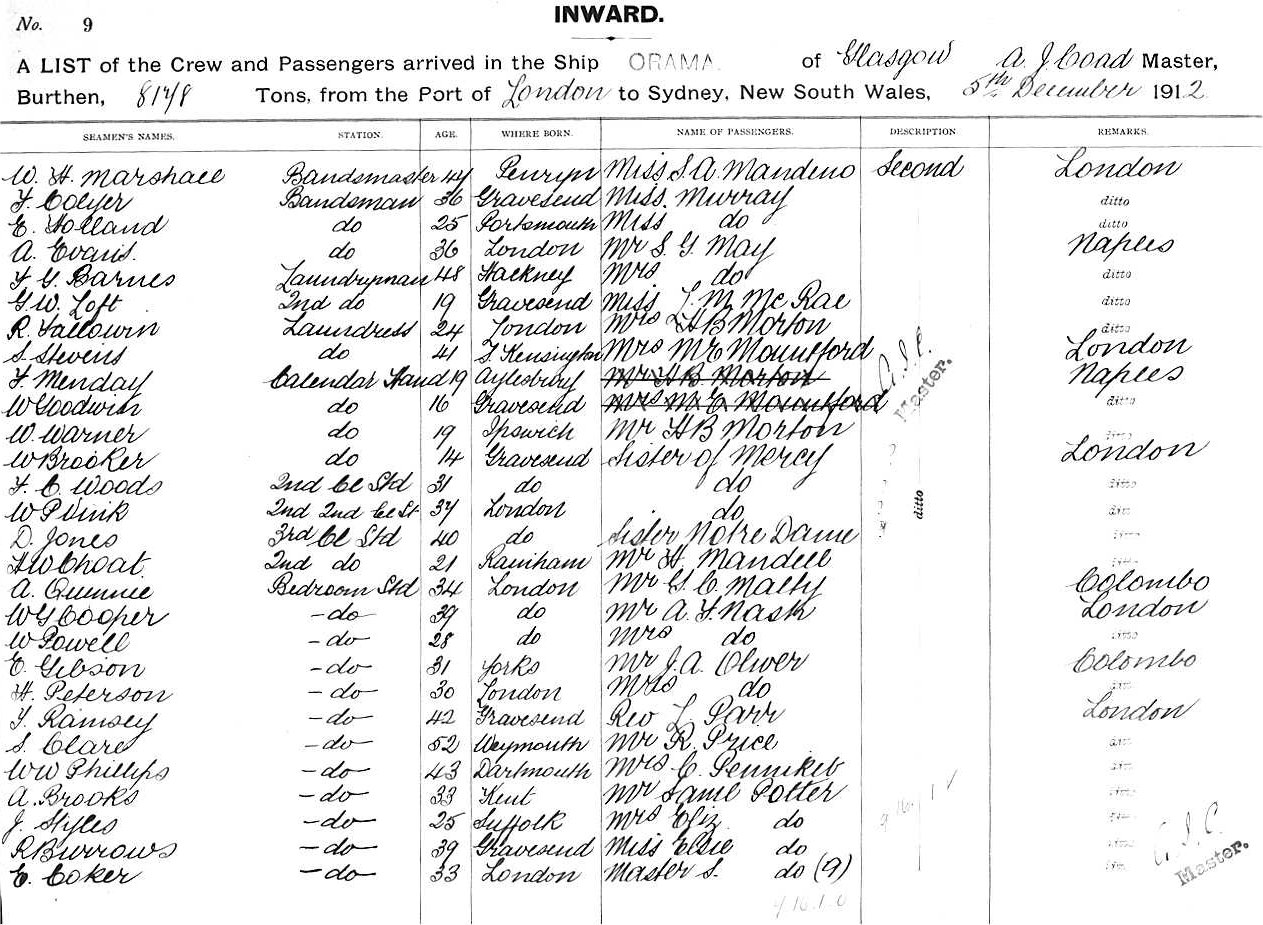 No. 9
INWARD.
A LIST of the Crew and Passengers arrived in the Ship ORAMA of Glasgow A J Coad Master,
Burthen, Tons, from the Port of London to Sydney, New South Wales, 5th December 1912
SEAMEN'S NAMES. STATION. AGE. WHERE BORN. NAME OF PASSENGERS. DESCRIPTION REMARKS.
W. H. Marshall Bandsmaster 44 Penryn Miss S. A. Mandeno Second London
F Colyer Bandsman 36 Gravesend Miss Murray ditto
E. Holland do 25 Portsmouth Miss do ditto
A. Evans. do 36 London Mr S. G. May Naples
F G Barnes Laundryman 48 Hackney Mrs do ditto
G. W. Loft 2nd do 19 Gravesend Miss L. M. McRae ditto
R. Fallowin Laundress 24 London Mrs H B Morton ditto
S. Stevens do 41 S. Kensington Mrs M E Mountford London
F. Menday Calendar Hand 19 Aylesbury Mr H B Morton Naples
W Goodwin do 16 Gravesend Mrs M E Mountford ditto
W. Warner do 19 Ipswich Mr H B Morton ditto
W Brooker do 14 Gravesend Sister of Mercy London
F. C. Woods 2nd Cl Std 31 do do ditto
W P Vink 2nd 2nd Cl St 34 London do ditto
D. Jones 3rd Cl Std 40 do Sister Notre Dame ditto
H W Choat 2nd do 21 Rainham Mr H. Mandell ditto
A. Quinnie Bedroom Std 34 London Mr G. C. Malty Colombo
W G Cooper - do - 39 do Mr A. F. Nask London
W Powell - do - 28 do Mrs do ditto
E. Gibson - do - 31 Yorks Mr J. A. Oliver Colombo
H. Peterson - do - 30 London Mrs do ditto
F. Ramsey - do - 42 Gravesend Rev L Parr London
S. Clare - do - 52 Weymouth Mr R. Price ditto
W W Phillips - do - 43 Dartmouth Mrs C. ditto
A. Brooks - do - 33 Kent Mr Saml Potter ditto
J. Styles - do - 25 Suffolk Mrs Eliz do ditto
R Burrows - do - 39 Gravesend Miss Elsie do ditto
E. Coker - do - 33 London Master S. do (9) ditto
ditto
Master.
Master.